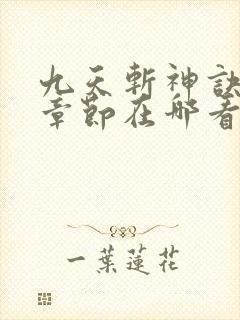 九天斬神訣
章節在哪看
一葉蓮花